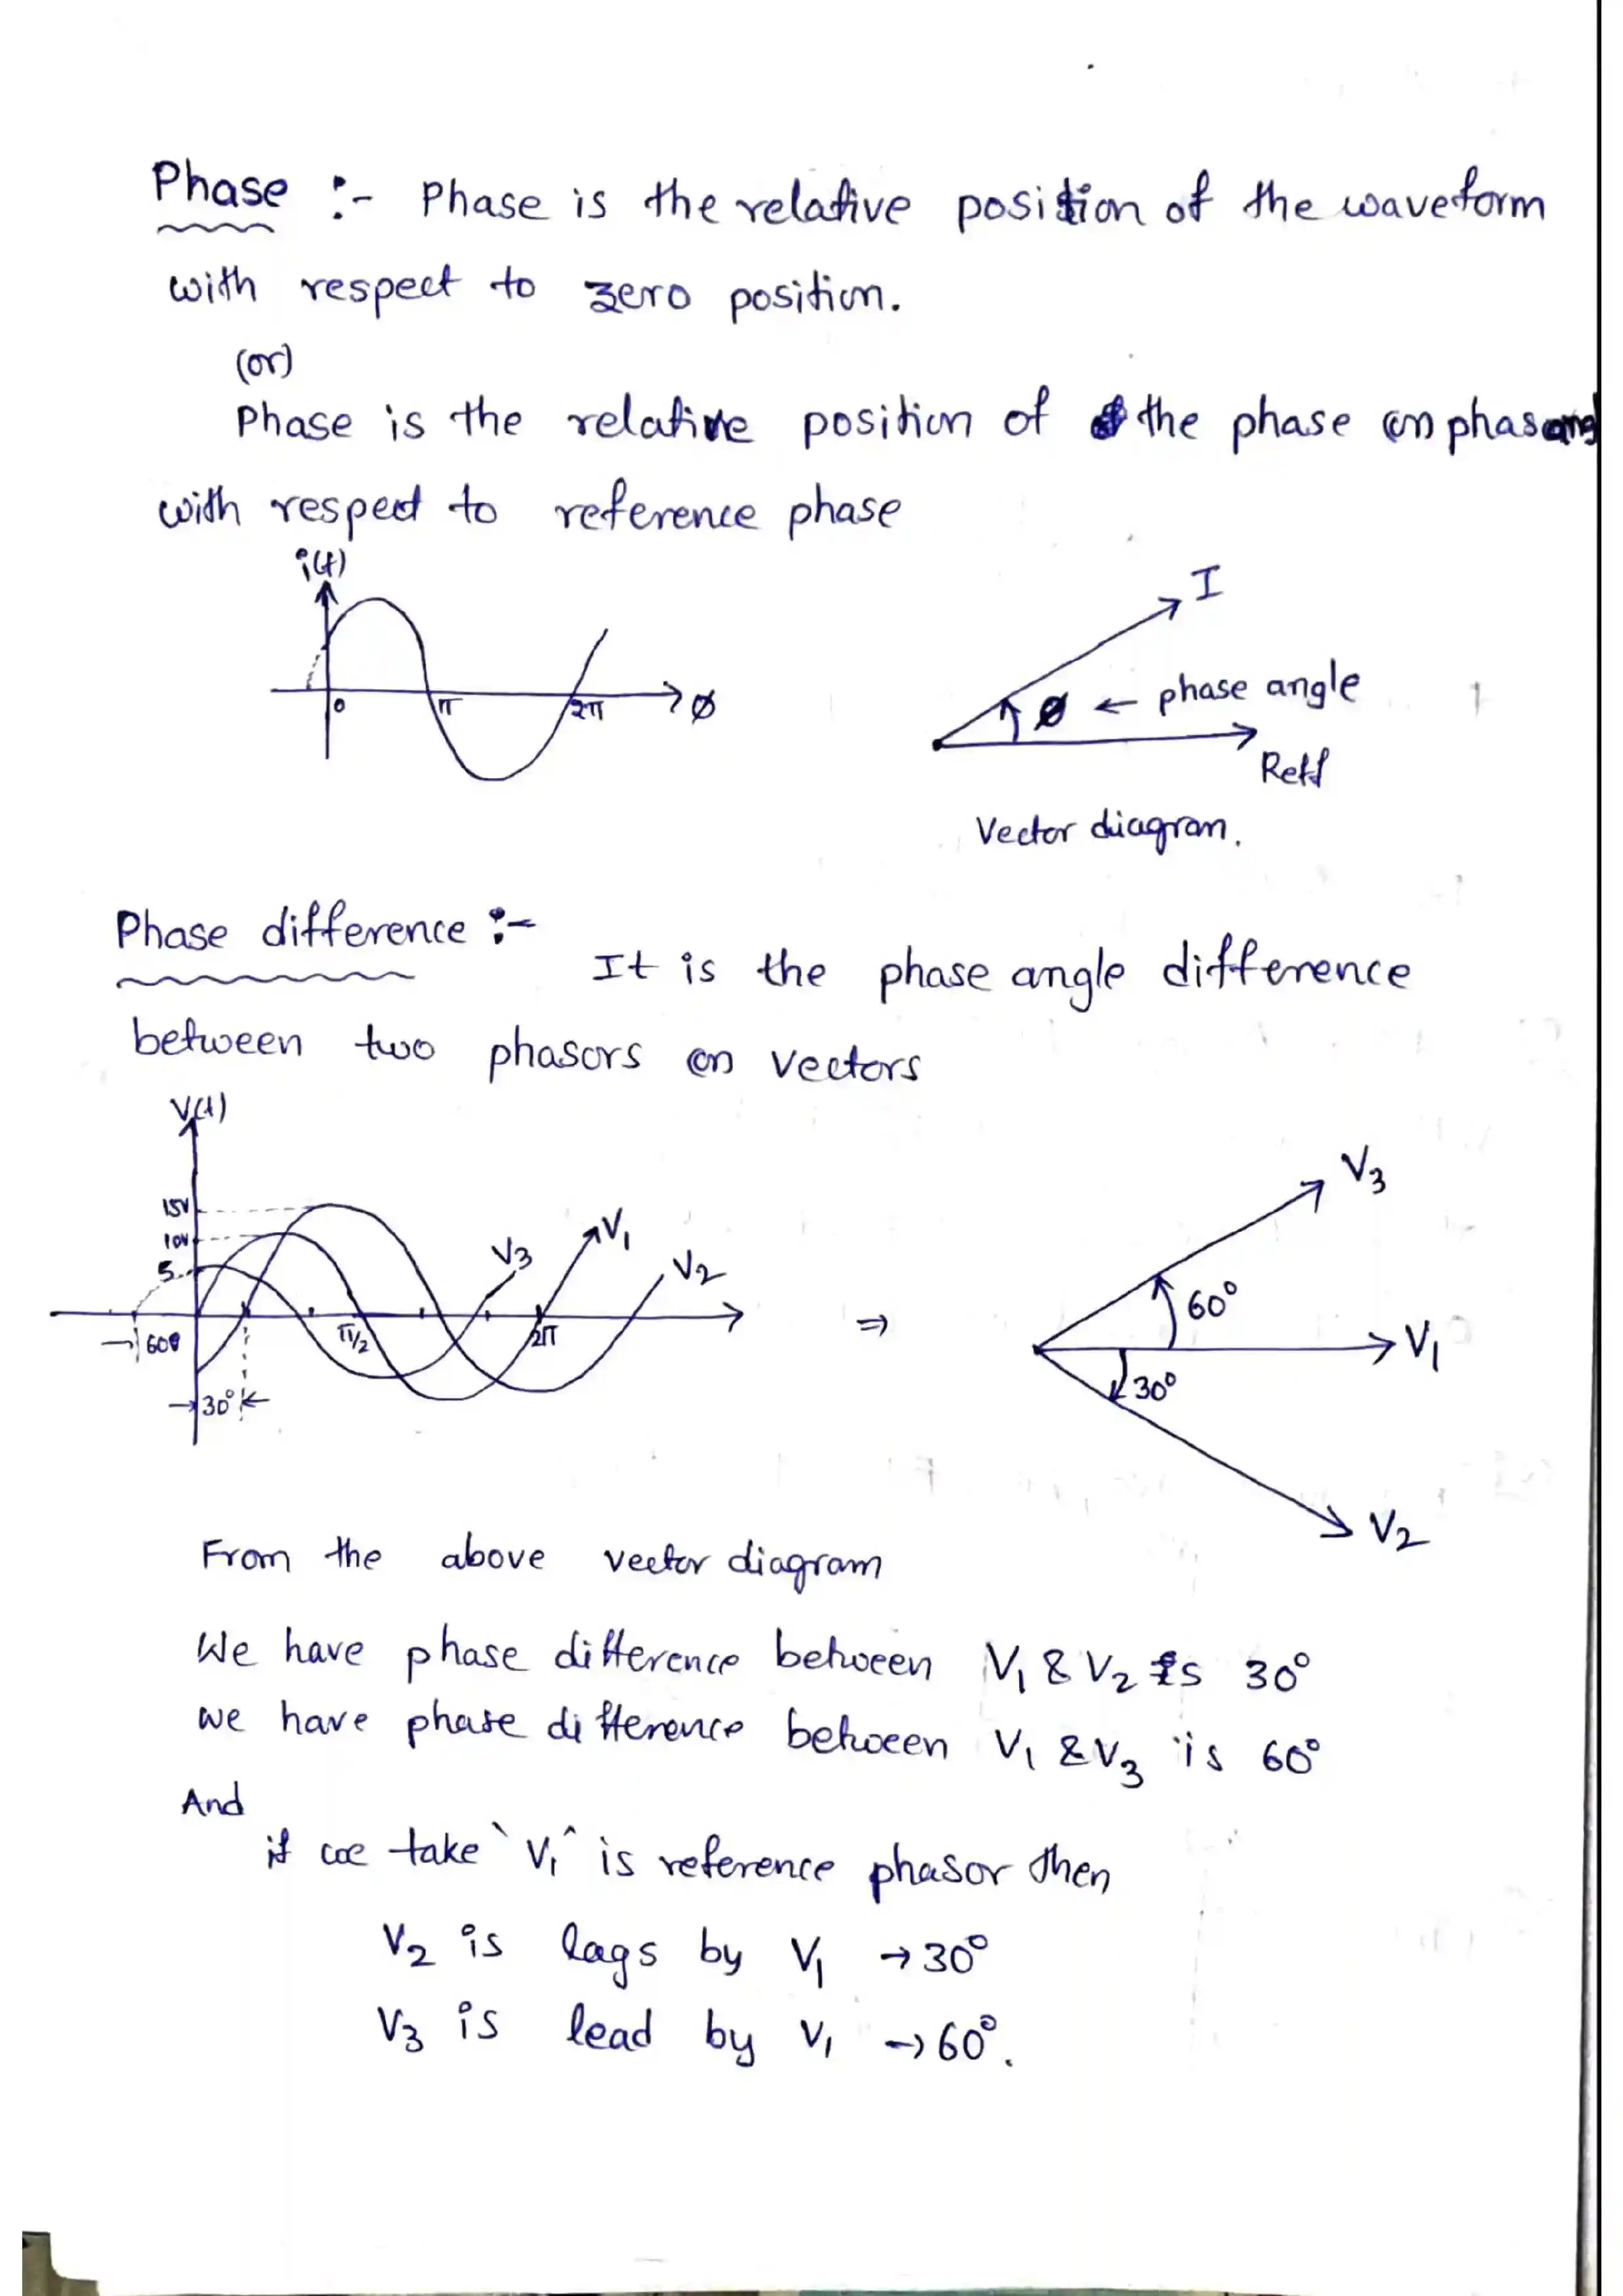 Phase :- Phase is the relative position of the waveform
with respect to zero position.
(or)
Phase is the relative position of the phase (or)
with respect to reference phase
i(t)
0 π 2π Ø
I
Ø ← phase angle
Reff
Vector diagram.
Phase difference :-
It is the phase angle difference
between two phasors (or) vectors
V(t)
15V
10V
5
60°
30°
π/2
2π
V3
V1
V2
⇒
V3
60°
V1
30°
V2
From the above vector diagram
We have phase difference between V1 & V2 is 30°
we have phase difference between V1 & V3 is 60°
And
if we take `V1^ is reference phasor then
V2 is lags by V1 → 30°
V3 is lead by V1 → 60°.